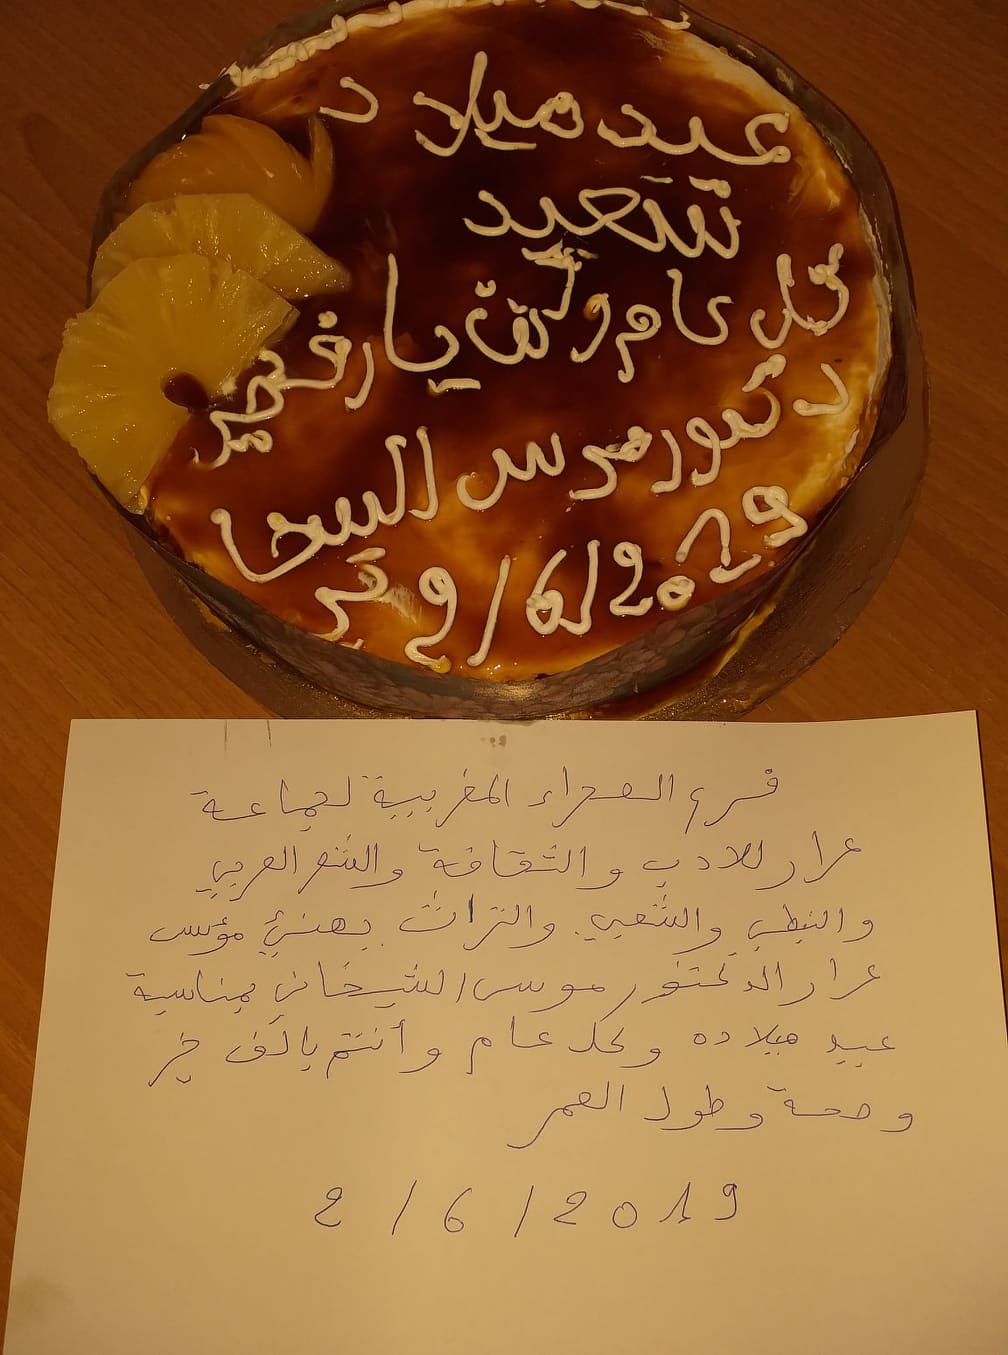 عيد ميلاد
سعيد
كل عام وأنت بألف خير
دكتور موسى الشيخا
ني 2/6/2019
فرع الصحراء المغربية لجماعة
عرار للادب والثقافة والشعر العربي
والنبطي والشعبي والتراث يهنئ مؤسس
عرار الدكتور موسى الشيخاني بمناسبة
عيد ميلاده وكل عام وأنتم بألف خير
وصحة وطول العمر
2/6/2019